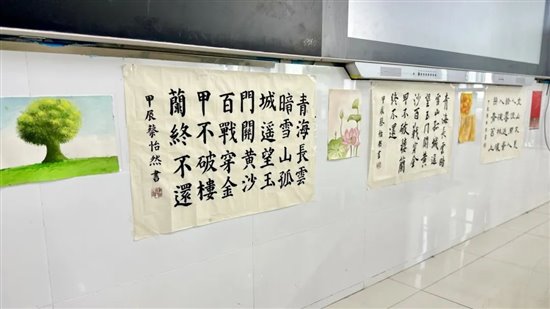 青海長雲
暗雪山孤
城遥望玉
門關黄沙
百戰穿金
甲不破樓
蘭終不還
甲辰 蔡怡然書
青海長雲暗
雪山孤城遥
望玉門關黄
沙百戰穿金
甲不破樓蘭
終不還